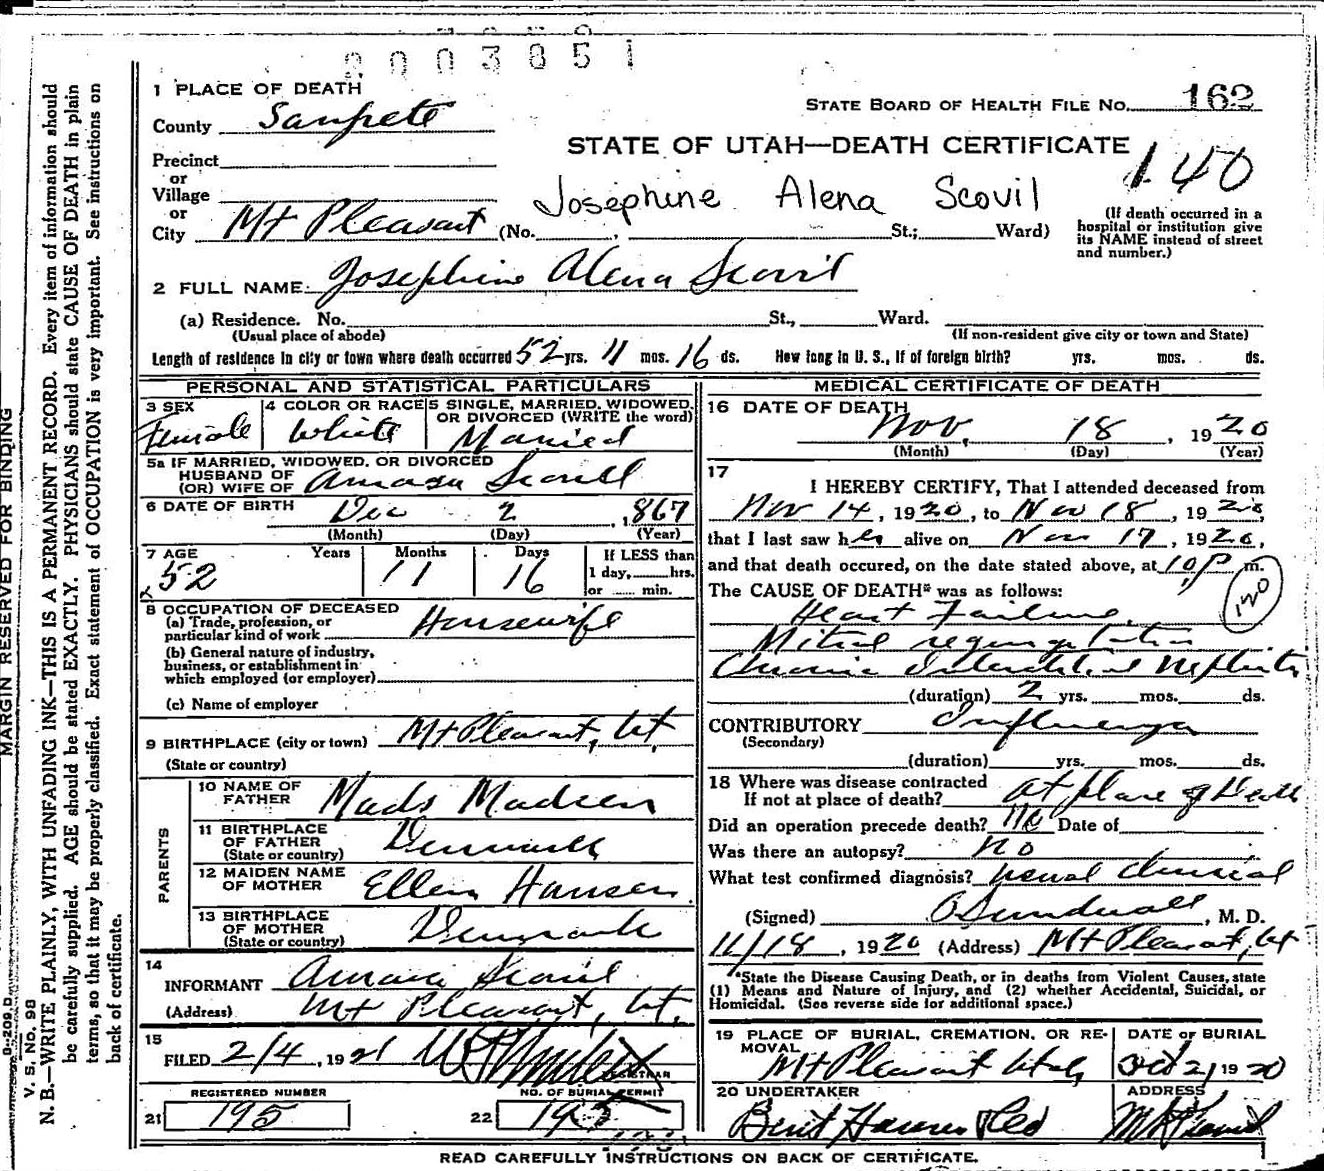 0003851
1 PLACE OF DEATH
STATE BOARD OF HEALTH FILE NO. 162
County Sanpete
STATE OF UTAH—DEATH CERTIFICATE
140
Precinct
or
Village
Josephine Alena Scovil
or
City Mt Pleasant (No. St.; Ward)
(If death occurred in a
hospital or institution give
its NAME instead of street
and number.)
2 FULL NAME Josephine Alena Scovil
(a) Residence. No. St., Ward.
(Usual place of abode) (If non-resident give city or town and State)
Length of residence in city or town where death occurred 52 yrs. 11 mos. 16 ds. How long in U. S., if of foreign birth? yrs. mos. ds.
PERSONAL AND STATISTICAL PARTICULARS
3 SEX Female
4 COLOR OR RACE White
5 SINGLE, MARRIED, WIDOWED, OR DIVORCED (WRITE the word) Married
5a IF MARRIED, WIDOWED, OR DIVORCED
HUSBAND OF
(OR) WIFE OF Amasa Scovil
6 DATE OF BIRTH Dec 2, 1867
(Month) (Day) (Year)
7 AGE Years Months Days If LESS than
52 11 16 1 day, hrs.
or min.
8 OCCUPATION OF DECEASED
(a) Trade, profession, or
particular kind of work Housewife
(b) General nature of industry,
business, or establishment in
which employed (or employer)
(c) Name of employer
9 BIRTHPLACE (city or town) Mt Pleasant, Ut,
(State or country)
PARENTS
10 NAME OF
FATHER Mads Madsen
11 BIRTHPLACE
OF FATHER
(State or country) Denmark
12 MAIDEN NAME
OF MOTHER Ellen Hansen
13 BIRTHPLACE
OF MOTHER
(State or country) Denmark
14
INFORMANT Amasa Scovil
(Address) Mt Pleasant, Ut,
15
FILED 2/4, 1921
REGISTRAR
REGISTERED NUMBER
21 195
NO. OF BURIAL PERMIT
22 195
MEDICAL CERTIFICATE OF DEATH
16 DATE OF DEATH
Nov, 18, 1920
(Month) (Day) (Year)
17
I HEREBY CERTIFY, That I attended deceased from
Nov 14, 1920, to Nov 18, 1920,
that I last saw her alive on Nov 17, 1920,
and that death occured, on the date stated above, at 10 P m.
The CAUSE OF DEATH* was as follows:
120
Heart Failure
Mitral regurgitation
Chronic Interstitial Nephritis
(duration) 2 yrs. mos. ds.
CONTRIBUTORY Influenza
(Secondary)
(duration) yrs. mos. ds.
18 Where was disease contracted
If not at place of death? at place of Death
Did an operation precede death? No Date of
Was there an autopsy? No
What test confirmed diagnosis? usual clinical
(Signed) O Sundwall, M. D.
11/18, 1920 (Address) Mt Pleasant, Ut
*State the Disease Causing Death, or in deaths from Violent Causes, state
(1) Means and Nature of Injury, and (2) whether Accidental, Suicidal, or
Homicidal. (See reverse side for additional space.)
19 PLACE OF BURIAL, CREMATION, OR RE-
MOVAL Mt Pleasant Utah
DATE OF BURIAL
21 1920
20 UNDERTAKER
ADDRESS
Mt Pleasant
READ CAREFULLY INSTRUCTIONS ON BACK OF CERTIFICATE.
MARGIN RESERVED FOR BINDING
V. S. No. 98
N. B.—WRITE PLAINLY, WITH UNFADING INK—THIS IS A PERMANENT RECORD. Every item of information should
be carefully supplied. AGE should be stated EXACTLY. PHYSICIANS should state CAUSE OF DEATH in plain
terms, so that it may be properly classified. Exact statement of OCCUPATION is very important. See instructions on
back of certificate.